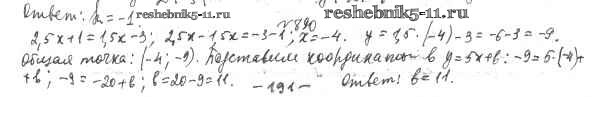 Ответ: k = -1. reshebnik5-11.ru
№890 reshebnik5-11.ru
2,5x+1=1,5x-3; 2,5x-1,5x=-3-1; x=-4. y=1,5·(-4)-3=-6-3=-9.
Общая точка: (-4; -9). Подставим координаты в y=5x+b: -9=5·(-4)+
+b; -9=-20+b; b=20-9=11. Ответ: b=11.
-191-